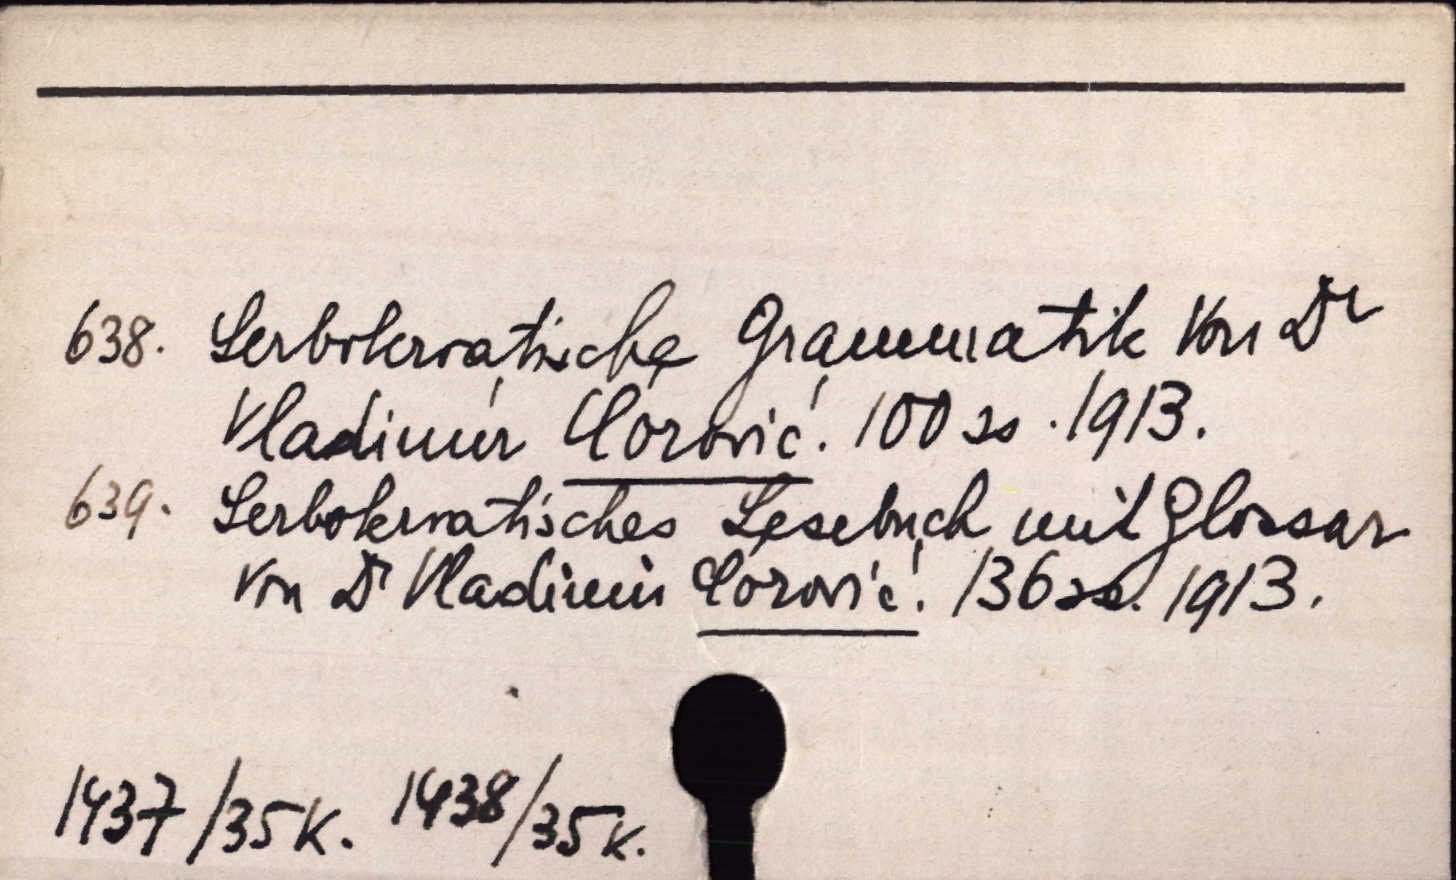 638. Serbokroatische Grammatik von Dr
Vladimir Ćorović. 100 ss. 1913.
639. Serbokroatisches Lesebuch mit Glossar
von Dr Vladimir Ćorović. 136 ss. 1913.
1437/35 K. 1438/35 K.